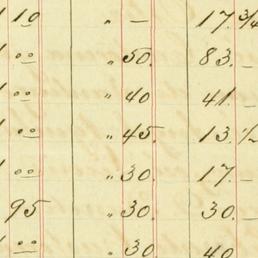 1 10 " — 17. 3/4
1 00 " 50. 83. —
1 00 " 40 41. —
1 00 " 45. 13. 1/2
1 00 " 30. 17. —
95 " 30. 30. —
1 00 " 30 40